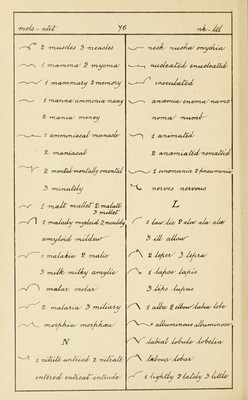 mols - ntit
76
nk - ltl
2 muscles 3 measles
1 mamma 2 myoma
1 mammary 2 memory
1 manna ammonia many
2 mania money
1 ammoniacal manade
2 maniacal
2 mental mentally omental
3 minutely
1 malt mallet 2 malate
3 millet
1 malady myeloid 2 mouldy
amyloid mildew
1 malakia 2 malic
3 milk milky amylic
malar molar
2 malaria 3 miliary
morphia morphœa
N
1 nitrite untried 2 nitrate
entered entreat intrude
neck nucha onychia
nucleated enucleated
inoculated
anæmia enoma name
noma numb
1 animated
2 anæmiated nematoid
1 onomanic 2 pneumonia
nerves nervous
L
1 law lie 2 aloe ala alæ
3 ill allow
2 leper 3 lepra
1 lapse lapis
3 lips lupus
1 alba 2 elbow labia lobe
albuminous albuminose
labial lobule lobelia
labour lobar
1 lightly 2 lately 3 little